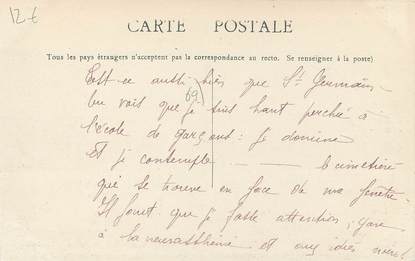 12 €
CARTE POSTALE
Tous les pays étrangers n'acceptent pas la correspondance au recto. Se renseigner à la poste)
69
Est-ce aussi bien que St Germain
tu vois que je suis haut perchée à
l'école de garçons: je domine
Et je contemple — — — le cimetière
qui se trouve en face de ma fenêtre
Il faut que je fasse attention; gare
à la neurasthénie et aux idées noires!